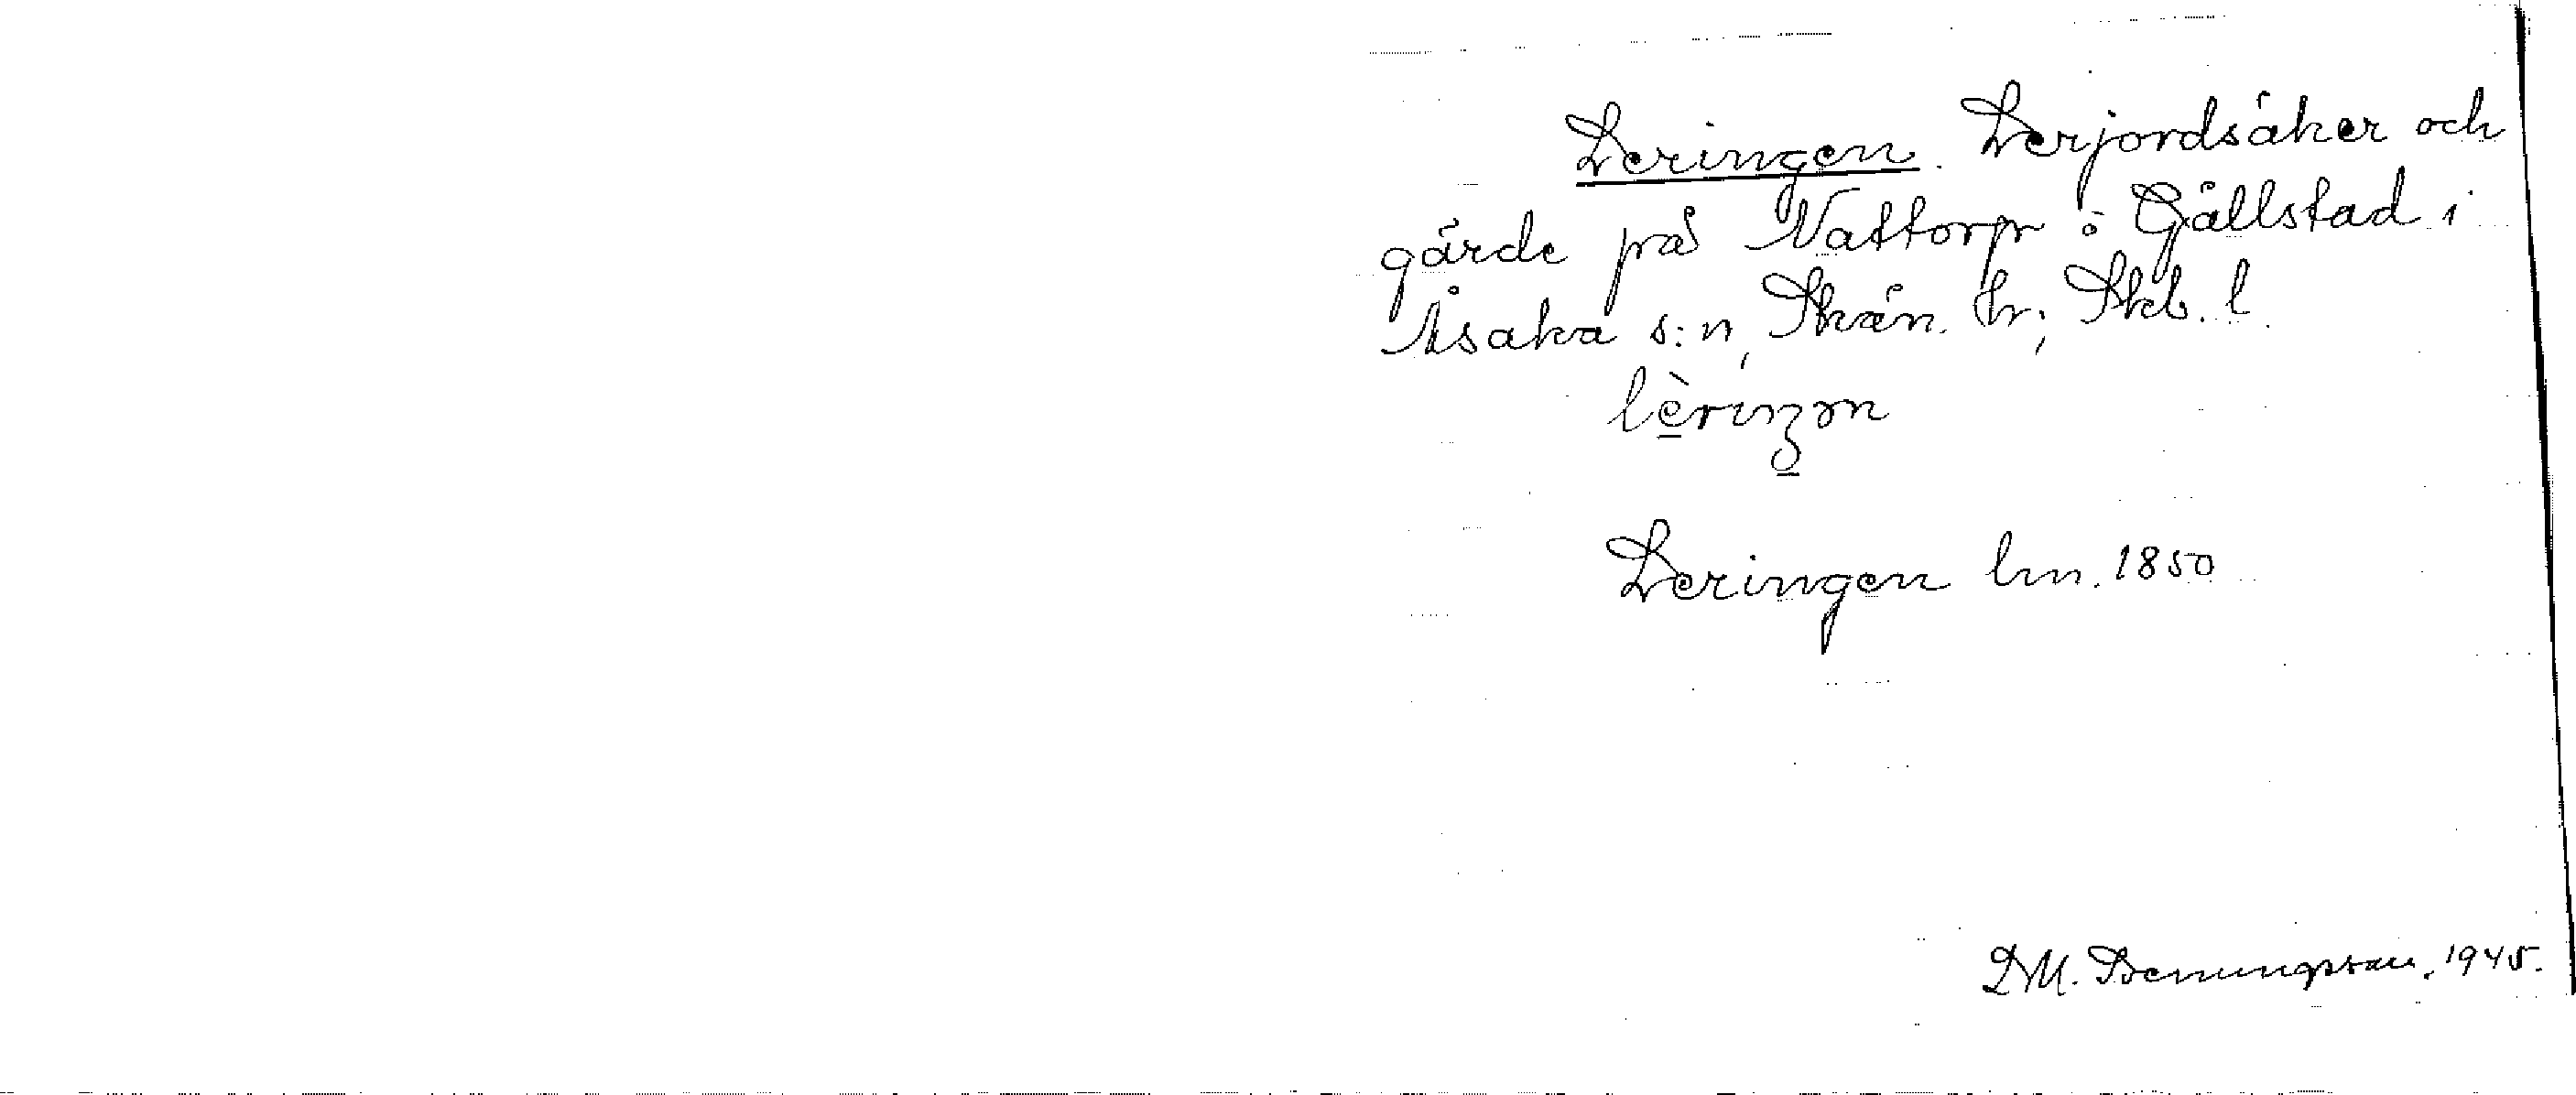 Leringen. Lerjordsåker och
gärde på Nattorp o Gällstad i
Åsaka s:n, Skån. hr; Skb. l.
lèriŋən
Leringen lm. 1850
1945.